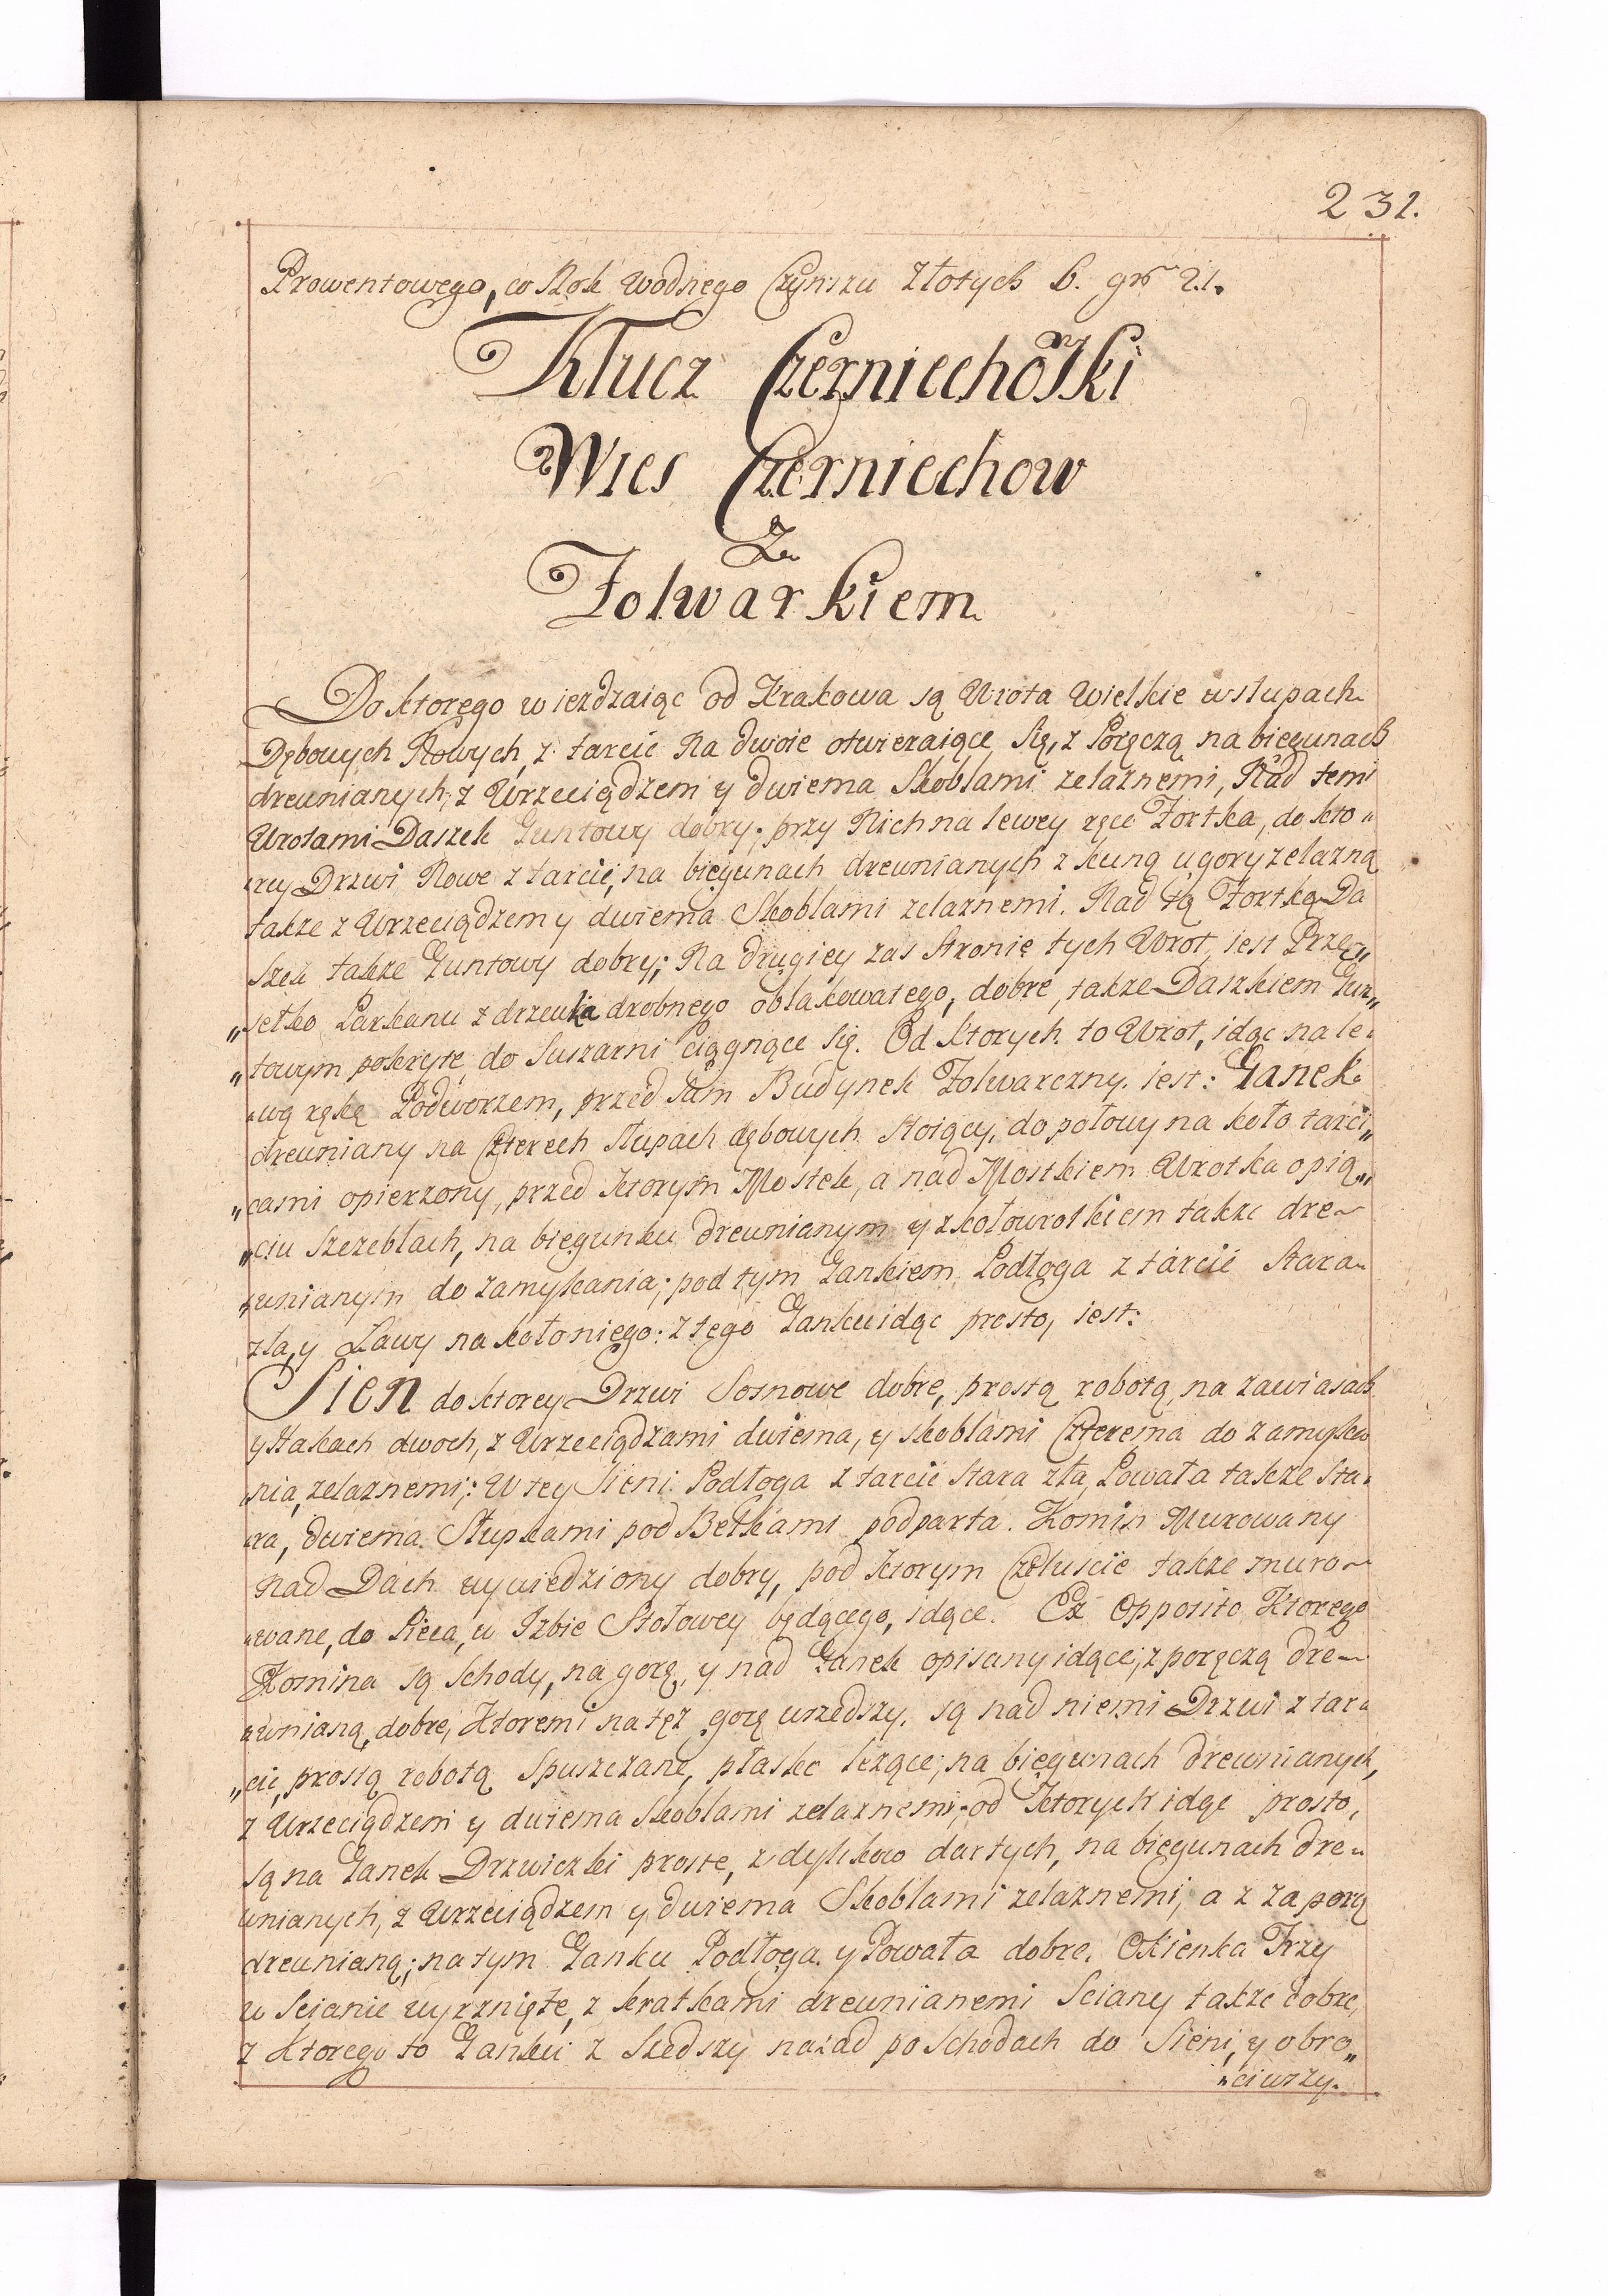 231.
Prowentowego, co Rok Wodnego Czynszu Złotych 6. gr 21.
Klucz Czerniechowski
Wies Czerniechow
Z
Folwarkiem
Do ktorego wiezdzaiąc od Krakowa są Wrota Wielkie w słupach
Dębowych Nowych, z tarcic Na dwoie otwieraiące Się, z Poręczą na biegunach
drewnianych, z Wrzeciądzem y dwiema Skoblami zelaznemi, Nad temi
Wrotami Daszek Guntowy dobry; przy Nich na lewey ręce Fortka, do kto„
„rey Drzwi Nowe z tarcic, na biegunach drewnianych z kuną u gory zelazną
takze z Wrzeciądzem y dwiema Skoblami zelaznemi. Nad tą Fortką Da
szek takze Guntowy dobry; Na drugiey zas Stronie tych Wrot, iest Przę„
„setko Parkanu z drzewka drobnego obłakowatego, dobre, takze Daszkiem Gun„
„towym pokryte do Suszarni ciągnące Się. Od ktorych to Wrot, idąc na le„
„wą rękę Podworzem, przed Sam Budynek Folwarczny. iest: Ganek
drewniany na Czterech Słupach dębowych Stoiący, do połowy na koło tarci„
„cami opierzony, przed ktorym Mostek, a nad Mostkiem Wrotka o pią„
„ciu Szczeblach, na biegunku drewnianym y z kołowrotkiem takze dre„
„wnianym do zamykania; pod tym Gankiem Podłoga z tarcic Stara
zła, y Ławy na koło niego: z tego Ganku idąc prosto, iest:
Sien do ktorey Drzwi Sosnowe dobre, prostą robotą, na zawiasach
y Hakach dwoch, z Wrzeciądzami dwiema, y skoblami Czterema do zamyka
„nia, zelaznemi; W tey Sieni Podłoga z tarcic Stara zła, Powała takze Sta„
„ra, dwiema Słupkami pod Belkami podparta. Komin Murowany
nad Dach wywiedziony dobry, pod ktorym Czeluscie takze muro„
„wane, do Pieca, w Izbie Stołowey będącego, idące. Ex Opposito Ktorego
Komina są Schody, na gorę, y nad Ganek opisany idące; z poręczą dre„
„wnianą, dobre, Ktoremi na tęz gorę wszedszy. są nad niemi Drzwi z tar„
„cic, prostą robotą Spuszczane, płasko lezące; na biegunach drewnianych,
z Wrzeciądzem y dwiema Skoblami zelaznemi, od Ktorych idąc prosto,
są na Ganek Drzwiczki proste, z dylikow dartych, na biegunach dre„
wnianych, z Wrzeciądzem y dwiema Skoblami zelaznemi, a z zaporą
drewnianą; na tym Ganku Podłoga y Powała dobre. Okienka Trzy
w Scianie wyrznięte, z kratkami drewnianemi Sciany takze dobre,
z Ktorego to Ganku z Szedszy nazad po Schodach do Sieni, y obro„
„ciwszy.